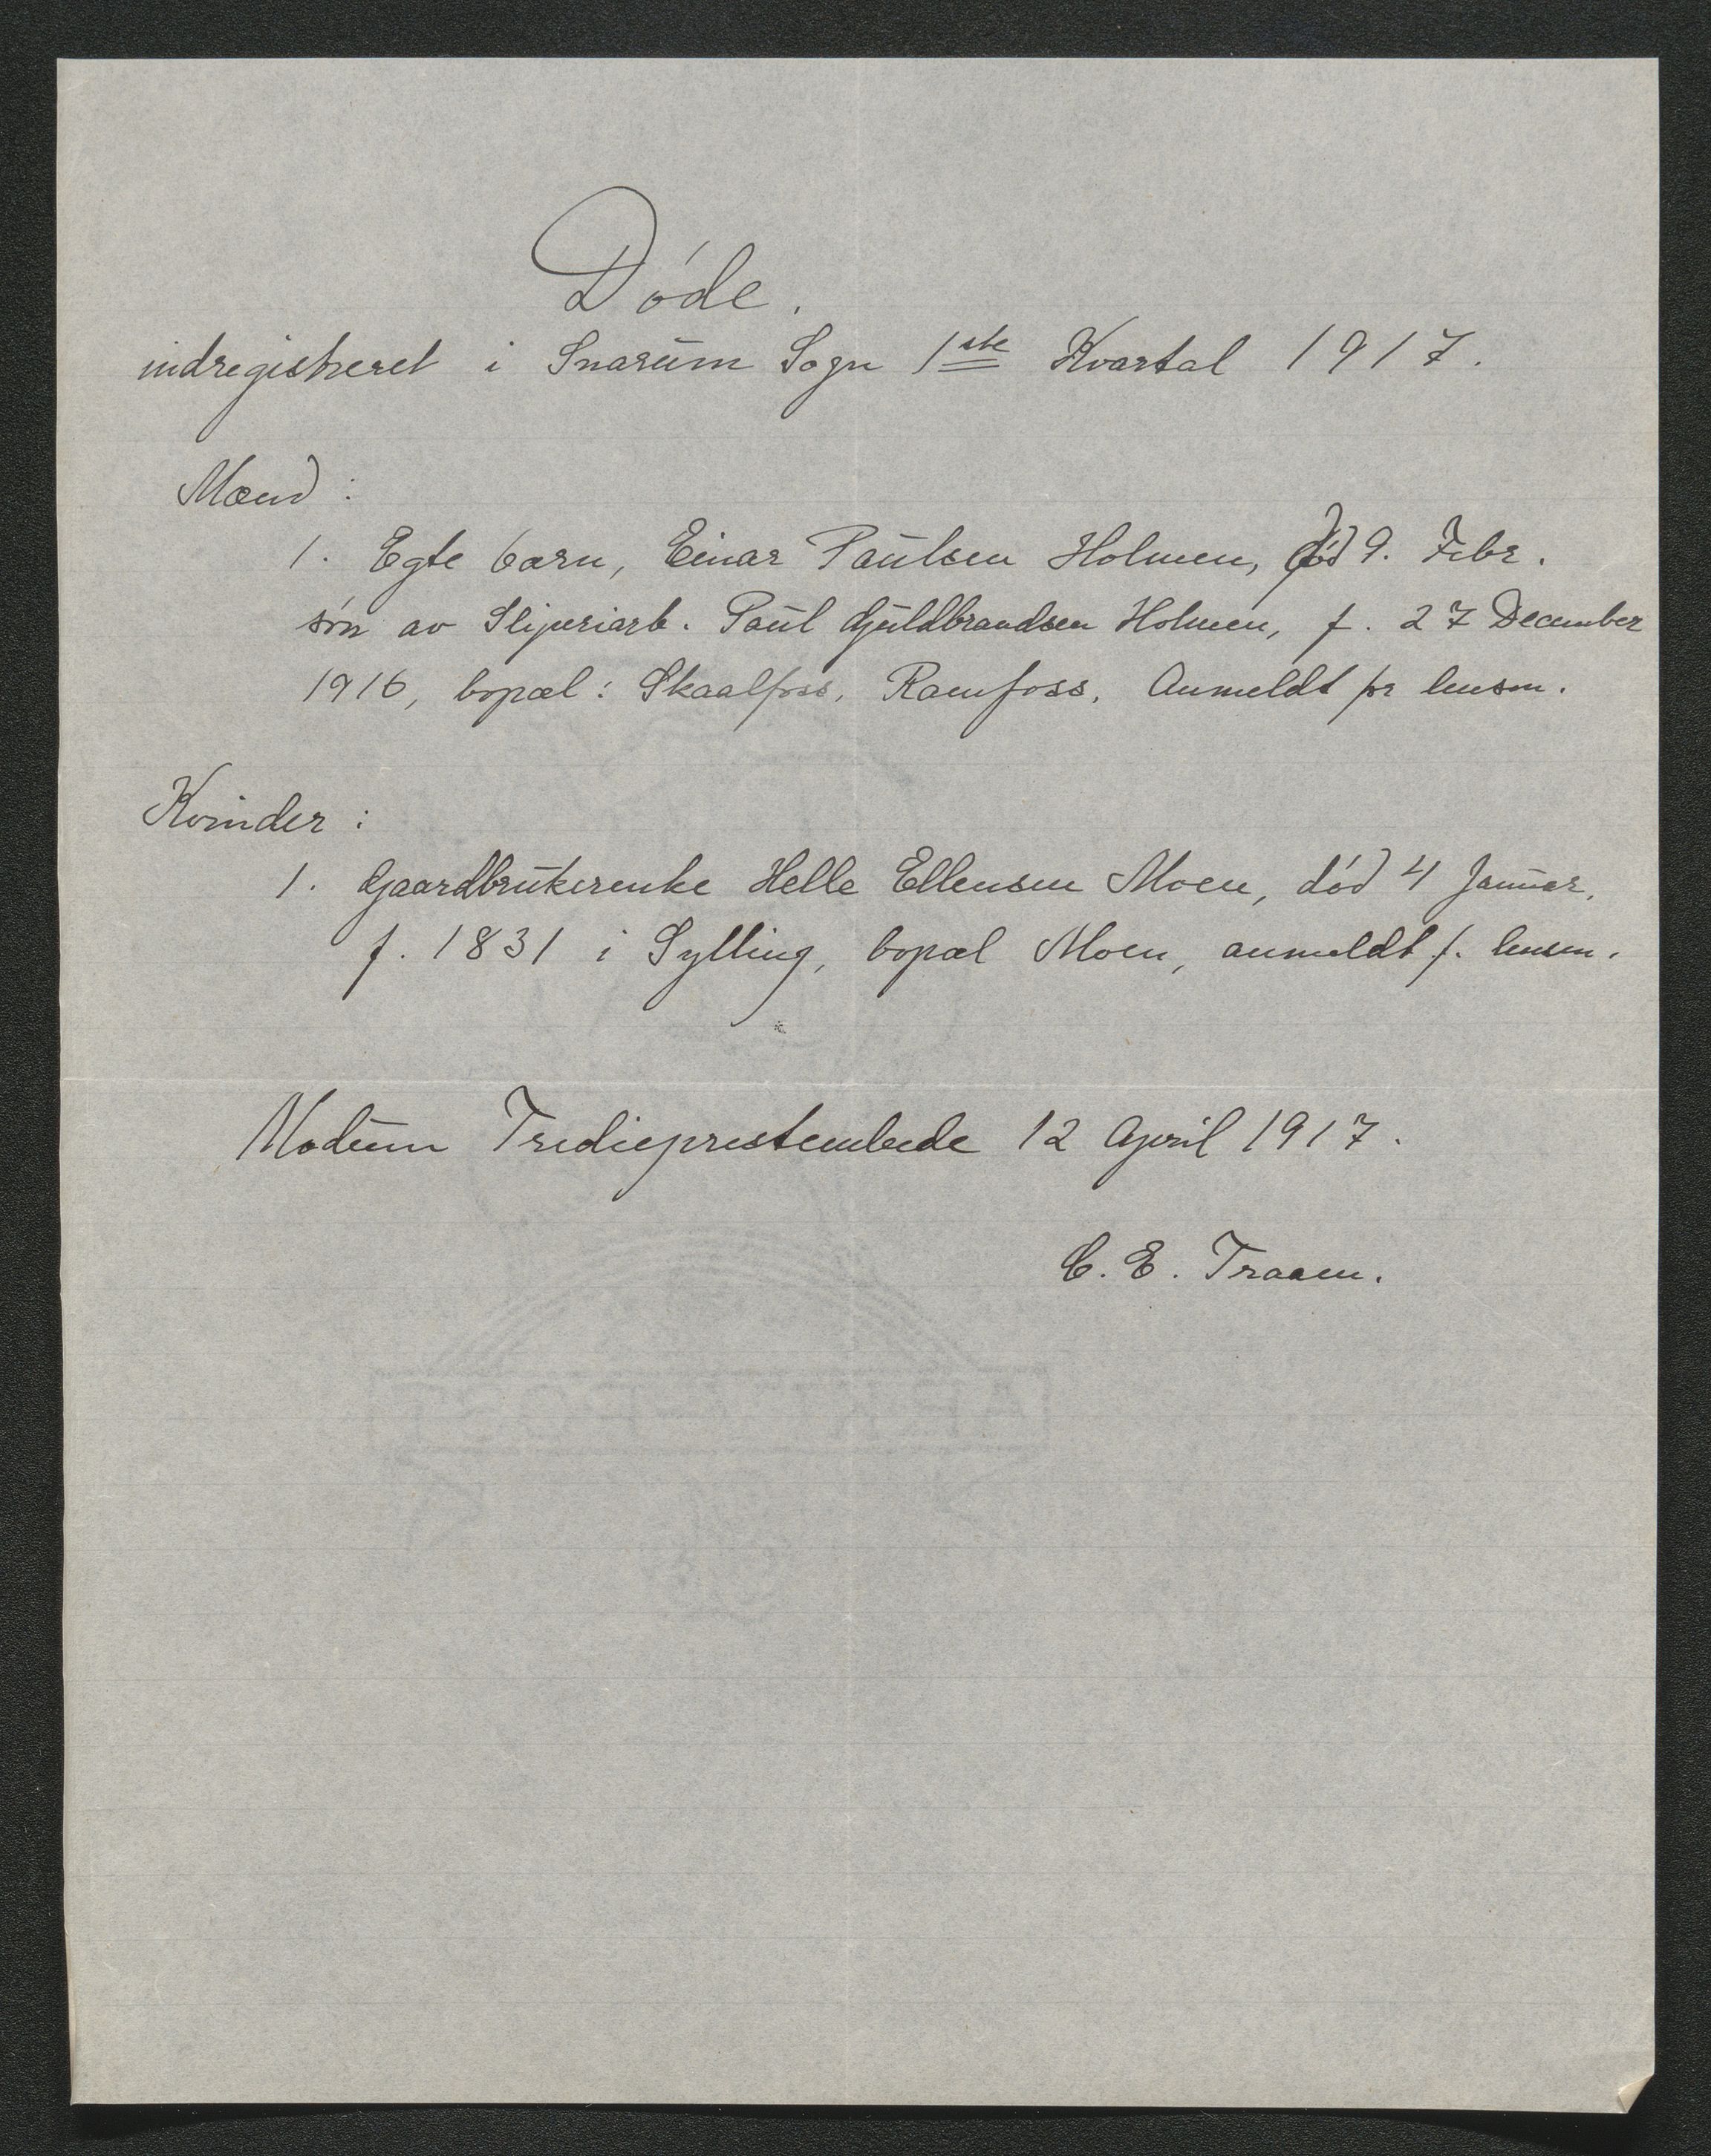 Døde.
indregistreret i Snarum Sogn 1ste Kvartal 1917.
Mænd:
1. Egte barn, Einar Paulsen Holmen, død 9. Febr.
søn av Sliperiarb. Paul Guldbrandsen Holmen, f. 27 December
1916, bopæl: Skaalfoss, Ramfoss. Anmeldt pr lensm.
Kvinder:
1. Gaardbrukerenke Helle Ellensen Moen, død 4 Januar,
f. 1831 i Sylling, bopæl Moen, anmeldt f. lensm.
Modum Tredieprestembede 12 April 1917.
C. E. Traaen.